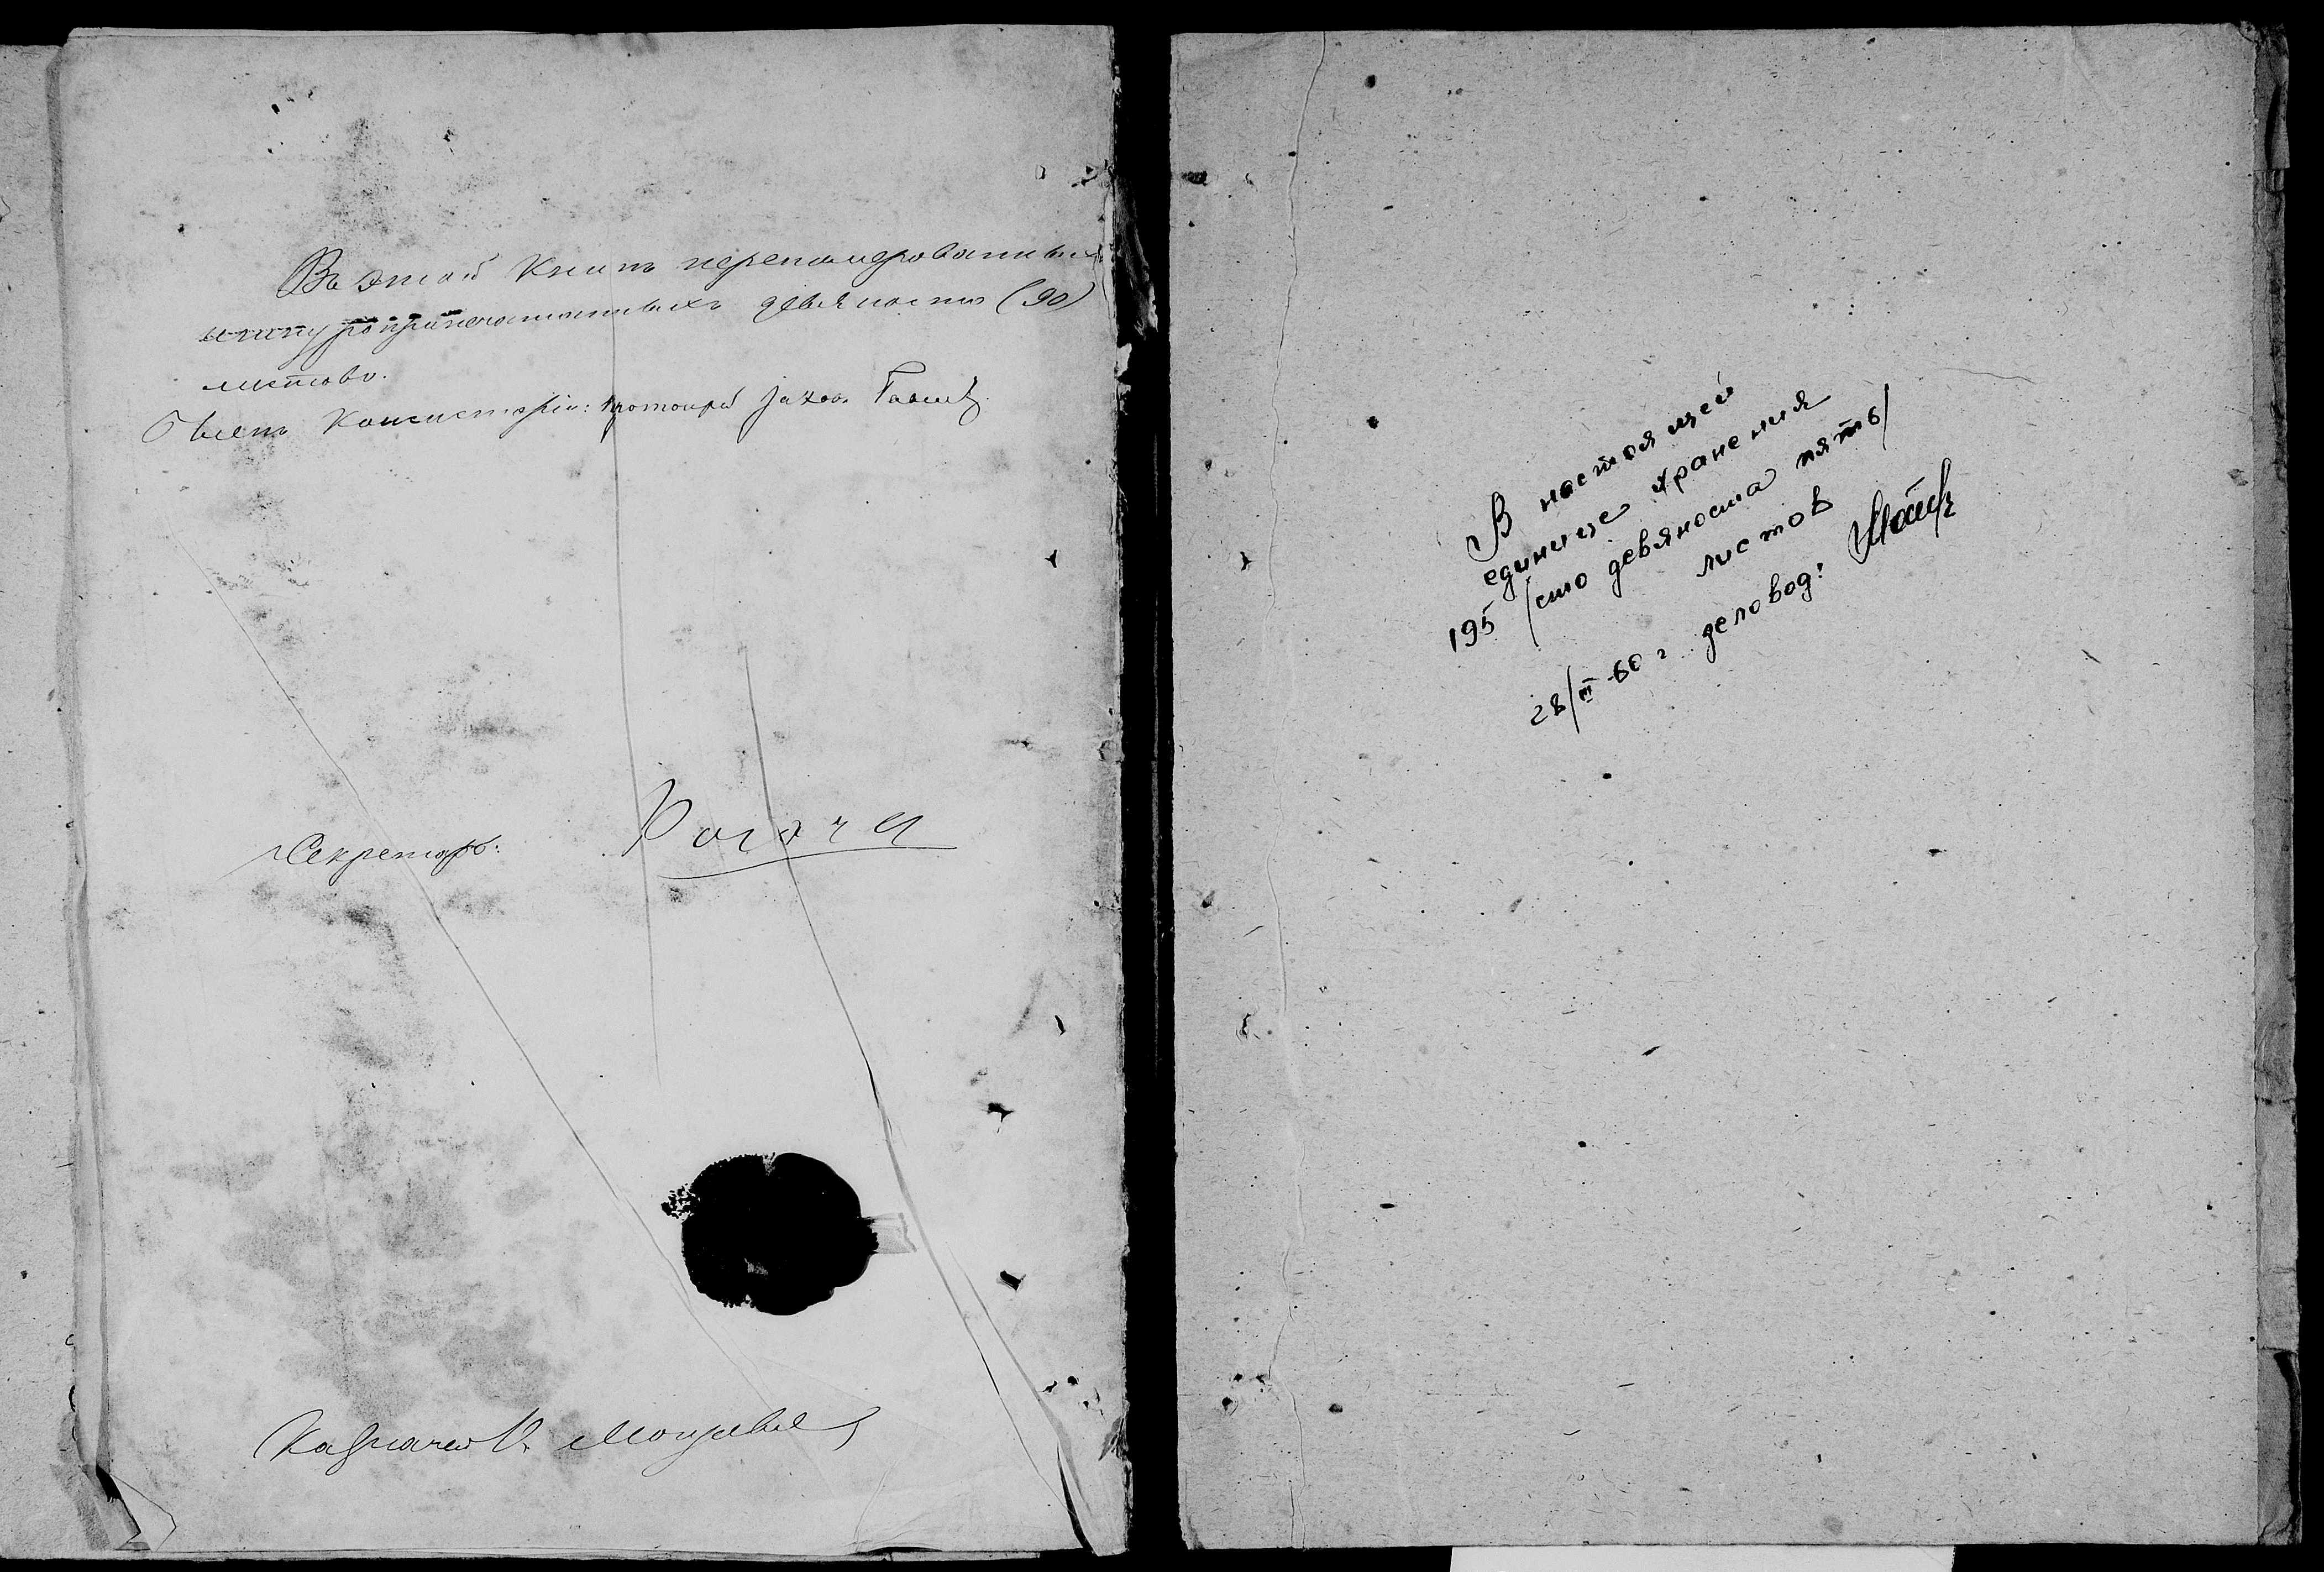 Въ этой Книгѣ перенумерованныхъ
и шнуроприпечатанныхъ девяносто (90)
листовъ.
Членъ Консисторіи: Протоіерей
Секретарь: Рогачи
Казначей
В настоящей
единице хранения
195 /сто девяноста пять/
листов
28/III-60 г деловод: